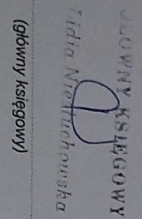 GŁÓWNY KSIĘGOWY
Lidia Nietuchowska
(główny księgowy)